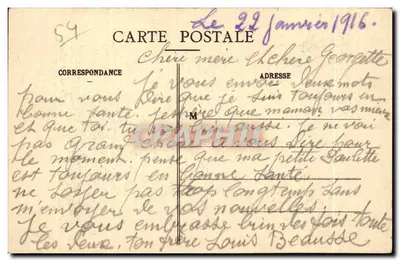 54
Le 22 janvier 1916.
CARTE POSTALE
Chère mère et chère Georgette
CORRESPONDANCE
ADRESSE
je vous envoi deux mots
pour vous dire que je suis toujours en
bonne santé. j'espère que maman vas mieux
M
et que toi. tu aussi. je ne voi
pas grand chose a vous dire pour
le moment. pense que ma petite Paulette
est toujours en bonne santé
ne laisser pas trop longtemp sans
m'envoyer de vos nouvelles.
je vous embrasse bien des fois toute
les deux. ton frère Louis Beausse